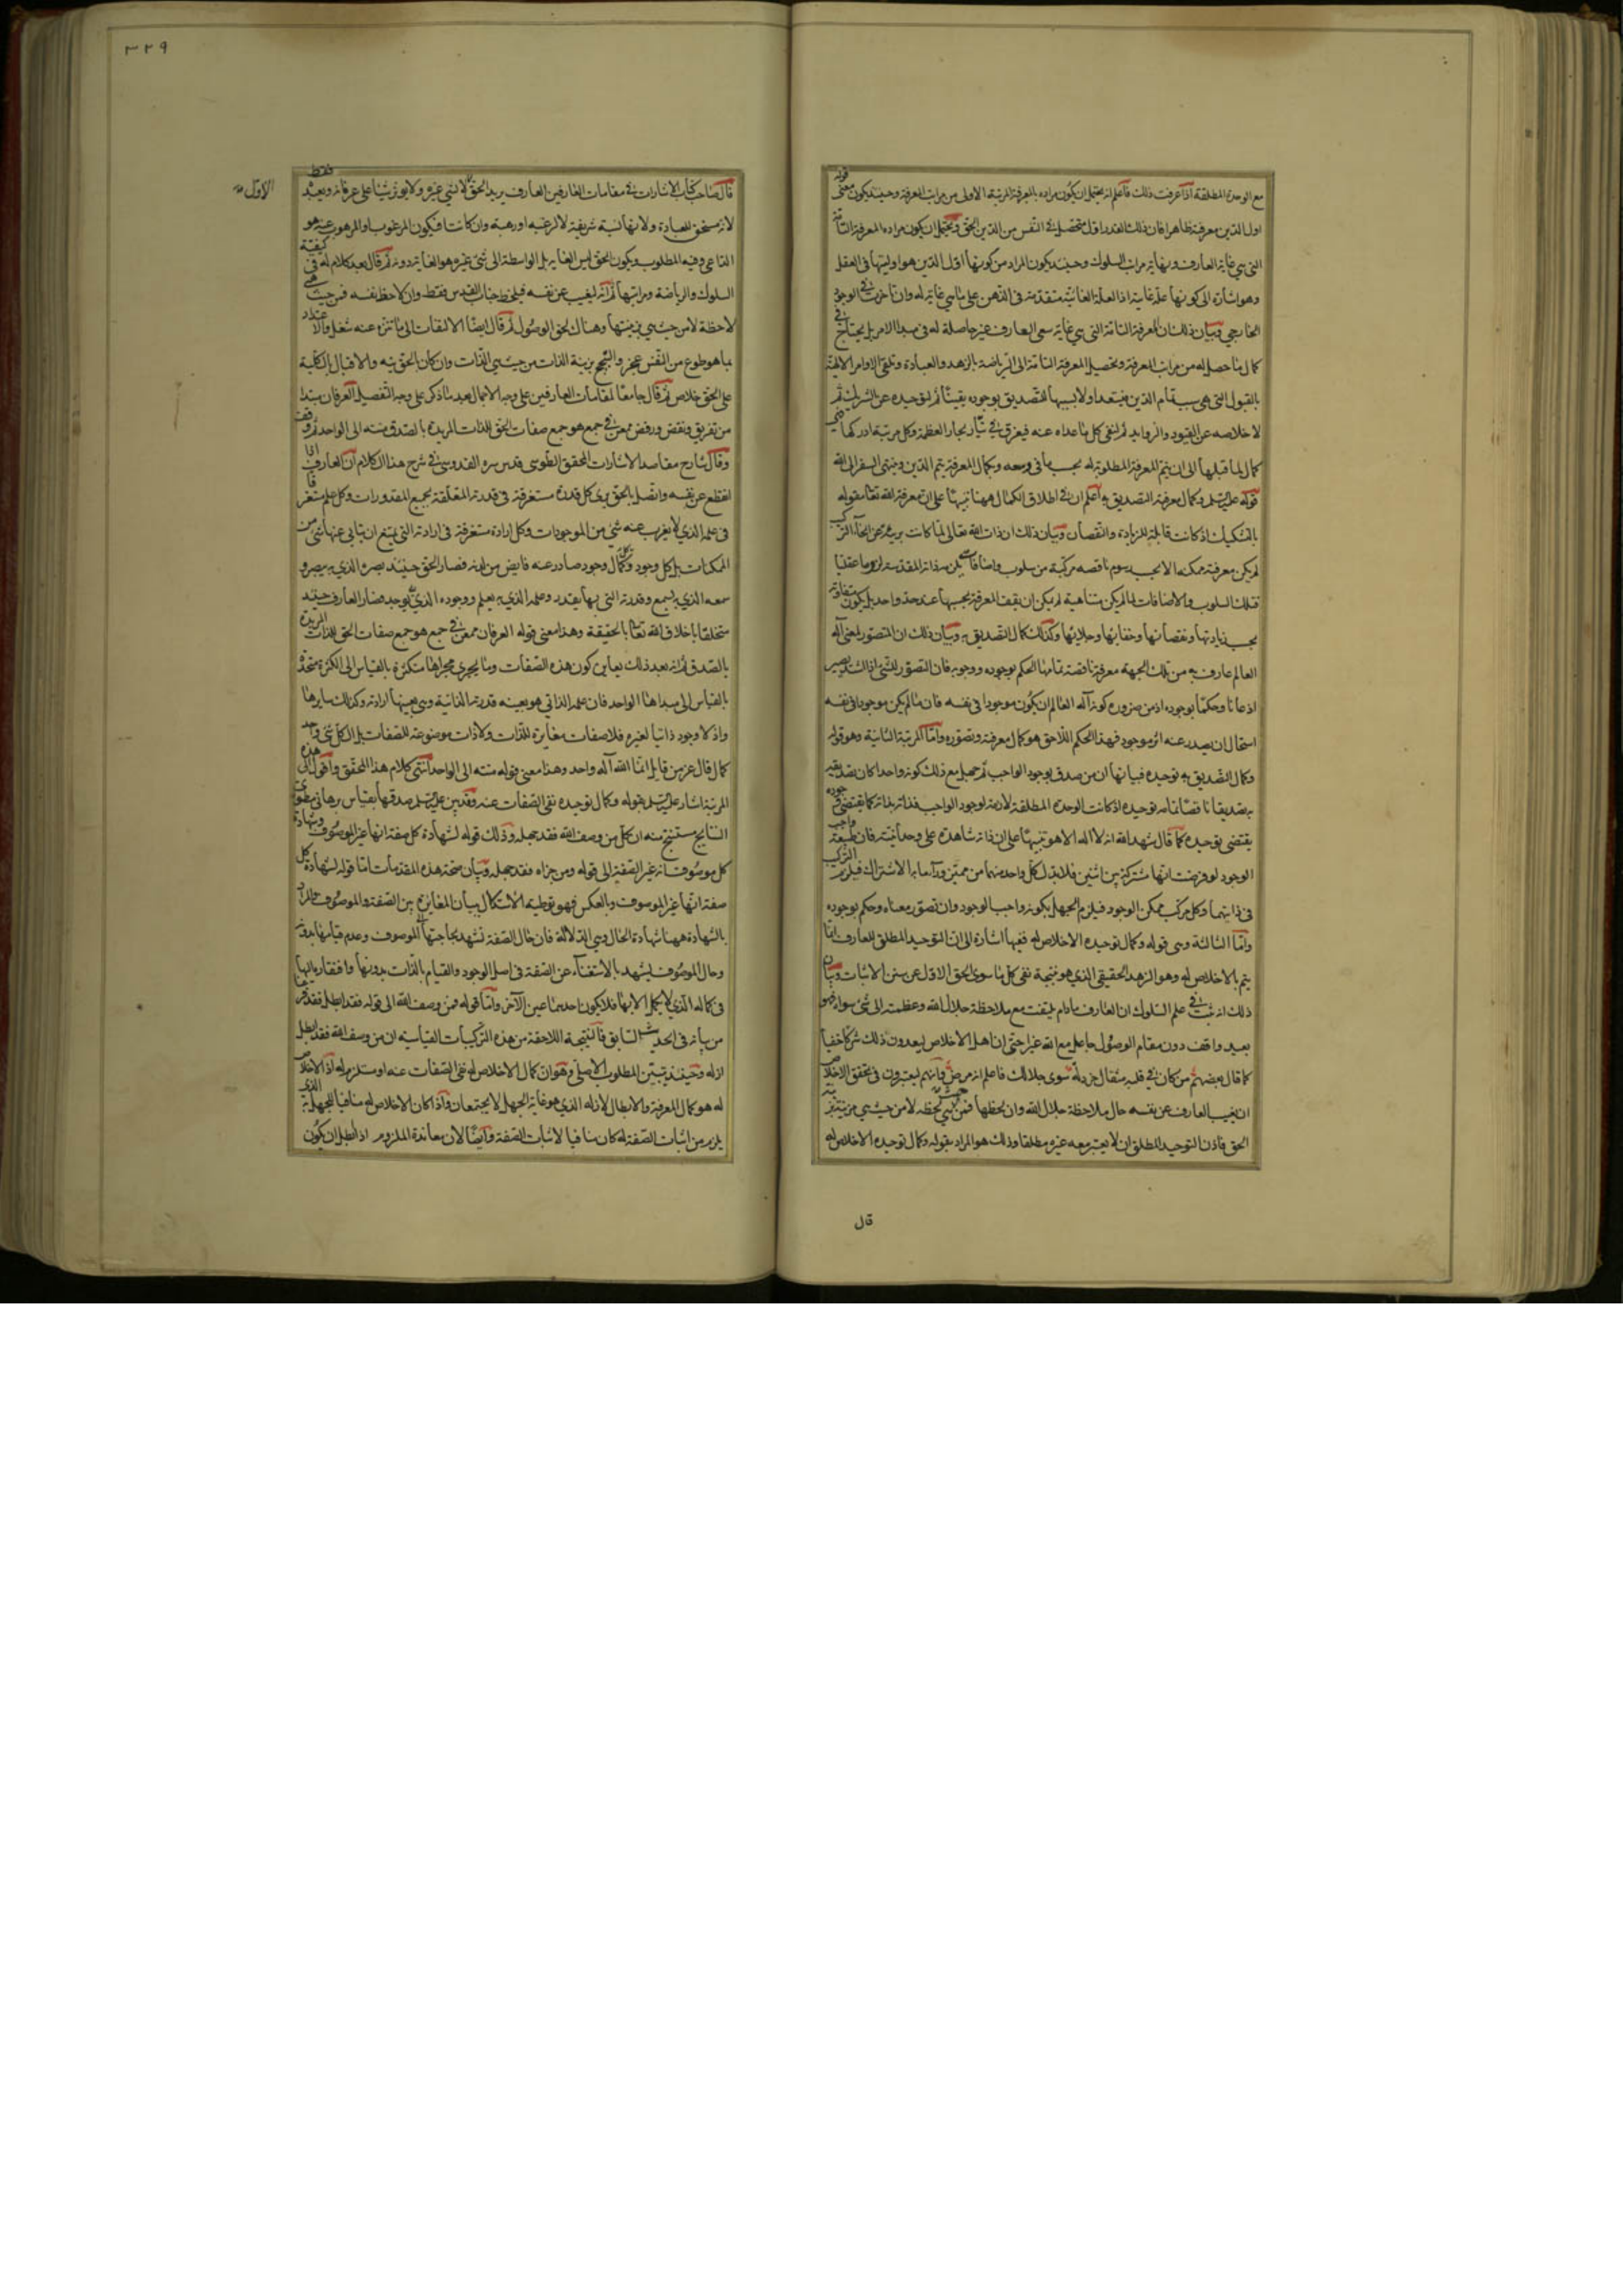 مع الوحدة المطلقة اذا عرفت ذلك فاعلم انه يحتمل ان يكون مراده بالمعرفة المرتبة الاولى من مراتب المعرفة وحينئذ يكون معنى قوله
اول الدين معرفته ظاهرا فان ذلك القدر اول متحصل في النفس من الدين الحق ويحتمل ان يكون مراده المعرفة التامة
التي هي غاية العارف ونهاية مراتب السلوك وحينئذ يكون المراد من كونها اول الدين هو اوليتها في العقل
وهو اشارة الى كونها علة غائية اذ العلة الغائية متقدمة في الذهن على ما هي غاية له وان تاخرت في الوجود
الخارجي وبيان ذلك ان المعرفة التامة التي هي غاية سعى العارف غير حاصلة له في مبدا الامر بل يحتاج في
كمال ما حصل له من مراتب المعرفة وتحصيل المعرفة التامة الى الرياضة بالزهد والعبادة وتلقى الاوامر الالهية
بالقبول التي هي سبب تمام الدين فيستعد اولا بسببها للتصديق بوجوده يقينا ثم لتوحيده عن الشريك ثم
لاخلاصه عن القيود والزوايد ثم لنفى كل ما عداه عنه فيغرق في تيار بحار العظمة وكل مرتبة ادركها فهي
كمال لما قبلها الى ان يتم المعرفة المطلوبة له بحسب ما في وسعه وبكمال المعرفة يتم الدين وينتهى السفر الى الله
قوله عليه السلم وكمال معرفته التصديق به اعلم ان في اطلاق الكمال ههنا تنبيها على ان معرفة الله تعالى مقوله
بالتشكيك اذ كانت قابلة للزيادة والنقصان وبيان ذلك ان ذات الله تعالى لما كانت برية عن انحاء التركيب
لم يكن معرفته ممكنة الا بحسب رسوم ناقصه مركبة من سلوب واضافات يلزم ذاته المقدسة لزوما عقليا
فتلك السلوب والاضافات لما لم يكن متناهية لم يكن ان يقف المعرفة بحسبها عند حد واحد بل يكون متفاوتة
بحسب زيادتها ونقصانها وخفائها وجلائها وكذلك كمال التصديق به وبيان ذلك ان المتصور لمعنى اله
العالم عارف به من تلك الجهة معرفة ناقصة تمامها الحكم بوجوده ووجوبه فان التصور للشى اذا اشتد يصير
اذعانا وحكما بوجوده اذ من ضرورة كونه اله العالم ان يكون موجودا في نفسه فان ما لم يكن موجودا في نفسه
استحال ان يصدر عنه اثر موجود فهذا الحكم اللاحق هو كمال معرفته وتصوره واما المرتبة الثانية وهو قوله
وكمال التصديق به توحيده فبيانها ان من صدق بوجود الواجب ثم جهل مع ذلك كونه واحدا كان تصديقه
به تصديقا ناقصا تمامه توحيده اذ كانت الوحدة المطلقة لازمة لوجود الواجب فذاته بذاته كما يقتضى وجوده
يقتضى توحيده كما قال شهد الله انه لا اله الا هو تنبيها على ان ذاته شاهدة على وحدانيته فان طبيعة واجب
الوجود لو فرضت انها مشتركة بين اثنين فلا بد لكل واحد منهما من مميز ورآء ما به الاشتراك فيلزم التركيب
في ذاتيهما وكل مركب ممكن الوجود فيلزم الجهل بكونه واجب الوجود وان تصور معناه وحكم بوجوده
واما الثالثة وهي قوله وكمال توحيده الاخلاص له ففيها اشارة الى ان التوحيد المطلق للعارف انما
يتم بالاخلاص له وهو الزهد الحقيقي الذي هو نتيجة نفى كل ما سوى الحق الاول عن سنن الاثبات وبيان
ذلك انه ثبت في علم السلوك ان العارف مادام يلتفت مع ملاحظة جلال الله وعظمته الى شئ سواه فهو
بعيد واقف دون مقام الوصول جاعل مع الله غيرا حتى ان اهل الاخلاص ليعدون ذلك شركا خفيا
كما قال بعضهم من كان في قلبه مثقال خردلة سوى جلالك فاعلم انه مرض وانهم ليعتبرون في تحقق الاخلاص
ان يغيب العارف عن نفسه حال ملاحظة جلال الله وان لحظها فمن حيث هي لاحظة لا من حيث هي مزينة بزينة
الحق فاذن التوحيد المطلق ان لا يعتبر معه غيره مطلقا وذلك هو المراد بقوله وكمال توحيده الاخلاص له
قال
٣٢٩
الاول
قال صاحب كتاب الاشارات في مقامات العارفين العارف يريد الحق لا لشئ غيره ولا يوثر شيئا على عرفانه وتعبده فقط
لانه مستحق للعبادة ولانها نسبة شريفة لا لرغبة او رهبة وان كانت فيكون المرغوب او المرهوب عنه هو
الداعى وفيه المطلوب ويكون الحق ليس الغاية بل الواسطة الى شئ غيره هو الغاية دونه ثم قال بعد كلام له في كيفية
السلوك والرياضة ومراتبها ثم انه ليغيب عن نفسه فيلحظ جناب القدس فقط وان لاحظ نفسه فمن حيث هي
لاحظة لا من حيث هي بزينتها وهناك يحق الوصول ثم قال ايضا الالتفات الى ما تنزه عنه شغل والاعتداد
بما هو طوع من النفس عجز والتبجح بزينة الذات من حيث هي الذات وان كان بالحق تيه والاقبال بالكلية
على الحق خلاص ثم قال جامعا لمقامات العارفين على وجه الاجمال بعد ما ذكر على وجه التفصيل العرفان مبتدا
من تفريق ونقض ورفض ممعن في جمع هو جمع صفات الحق للذات المريدة بالصدق منته الى الواحد ثم وقف
وقال شارح مقاصد الاشارات المحقق الطوسى قدس سره القدوسى في شرح هذا الكلام ان العارف اذا
انقطع عن نفسه واتصل بالحق يرى كل قدرة مستغرقة في قدرته المتعلقة بجميع المقدورات وكل علم مستغرقا
في علمه الذي لا يعزب عنه شئ من الموجودات وكل ارادة مستغرقة في ارادته التي يمتنع ان يتابى عنها شئ من
الممكنات بل كل وجود وكل كمال وجود صادر عنه فايض من لدنه فصار الحق حينئذ بصره الذي به يبصر و
سمعه الذي به يسمع وقدرته التي بها يقدر وعلمه الذي به يعلم ووجوده الذي به يوجد فصار العارف حينئذ
متخلقا باخلاق الله تعالى بالحقيقة وهذا معنى قوله العرفان ممعن في جمع هو جمع صفات الحق للذات المريدة
بالصدق ثم انه بعد ذلك يعاين كون هذه الصفات وما يجرى مجراها متكثرة بالقياس الى الكثرة متحدة
بالقياس الى مبداها الواحد فان علمه الذاتي هو بعينه قدرته الذاتية وهي بعينها ارادته وكذلك سايرها
واذ لا وجود ذاتيا لغيره فلا صفات مغايرة للذات ولا ذات موضوعة للصفات بل الكل شئ واحد
كما قال عز من قايل انما الله اله واحد وهذا معنى قوله منته الى الواحد انتهى كلام هذا المحقق واقول الى هذه
المرتبة اشار عليه السلم بقوله وكمال توحيده نفى الصفات عنه وقد بين عليه السلم صدقها بقياس برهانى مطوى
النتايج مستنتج منه ان كل من وصف الله فقد جهله وذلك قوله لشهادة كل صفة انها غير الموصوف وشهادة
كل موصوف انه غير الصفة الى قوله ومن جزاه فقد جهله وبيان صحة هذه المقدمات اما قوله لشهادة كل
صفة انها غير الموصوف وبالعكس فهو توطية الاستدلال ببيان المغايرة بين الصفة والموصوف والمراد
بالشهادة ههنا شهادة الحال وهي الدلالة فان حال الصفة تشهد بحاجتها الى الموصوف وعدم قيامها بدونه
وحال الموصوف يشهد بالاستغناء عن الصفة في اصل الوجود والقيام بالذات بدونها وافتقاره اليها
في كماله الذي لا يكمل الا بها فلا يكون احدهما عين الآخر واما قوله فمن وصف الله الى قوله فقد ابطل فقد مر
من بيانه في الحديث السابق فالنتيجة اللاحقة من هذه التركيبات القياسية ان من وصف الله فقد ابطل
ازله وحينئذ تبين المطلوب الاصلى وهو ان كمال الاخلاص له نفى الصفات عنه او مستلزم له اذ الاخلاص
له هو كمال المعرفة والابطال لازله الذي هو غاية الجهل لا يجتمعان واذا كان الاخلاص له منافيا للجهل به الذي
يلزم من اثبات الصفة له كان منافيا لاثبات الصفة وايضا لان معاندة الملزوم اذ ابطل ان يكون